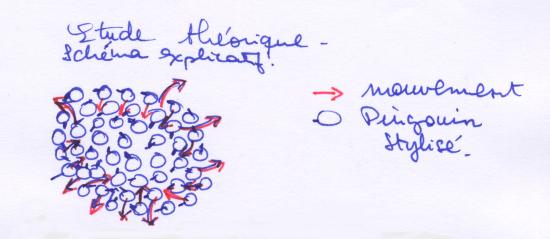 Etude théorique -
Schéma explicatif.
mouvement
Pingouin
Stylisé.